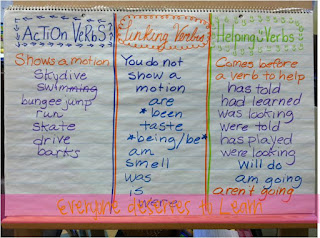 Action Verbs
Shows a motion
Skydive
swimming
bungee jump
run
skate
drive
barks
Linking Verbs
You do not
show a
motion
are
*been
taste
*being/be*
am
smell
was
is
were
Helping Verbs
Comes before
a verb to help
has told
had learned
was looking
were told
has played
were looking
Will do
am going
aren't going
Everyone deserves to Learn